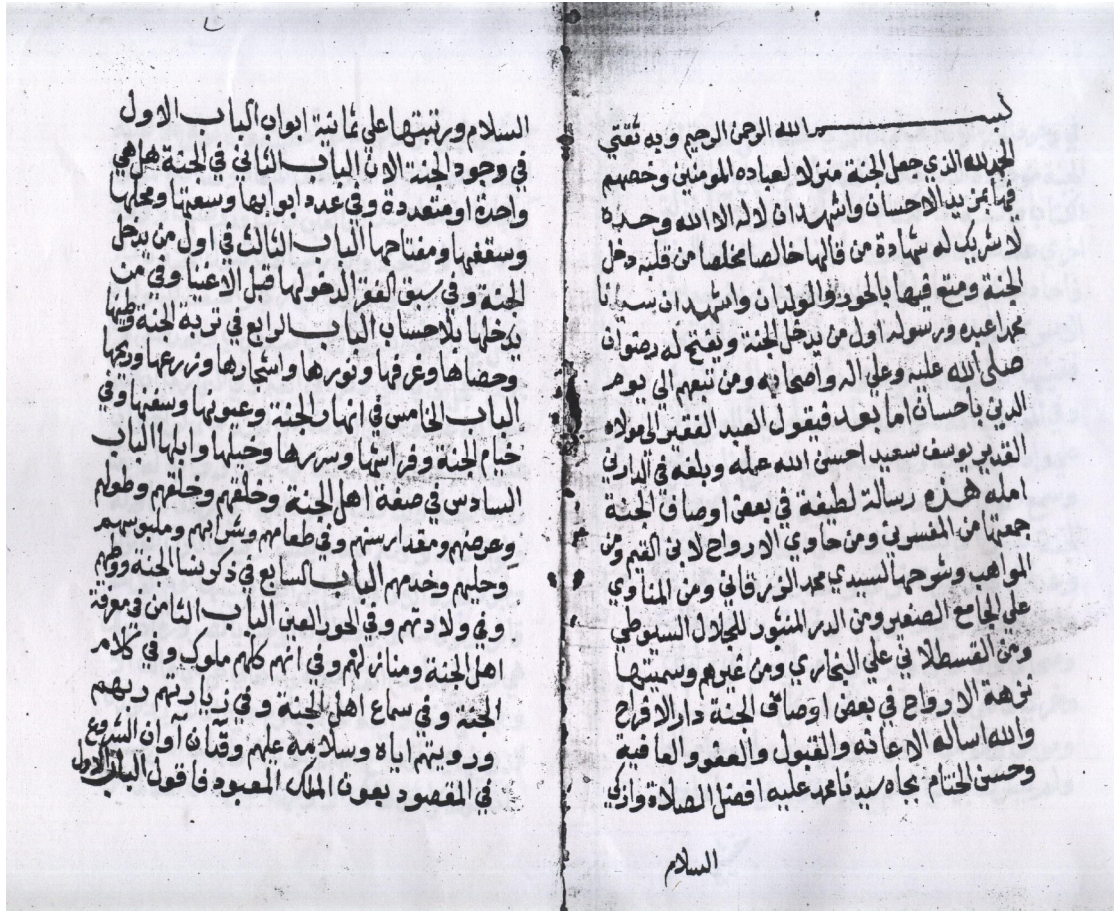 بسم الله الرحمن الرحيم وبه ثقتي
الحمد لله الذي جعل الجنة منزلا لعباده المومنين وخصهم
فيها بمزيد الاحسان واشهد ان لا اله الا الله وحده
لا شريك له شهادة من قالها خالصا مخلصا من قلبه دخل
الجنة ومتع فيها بالحور والولدان واشهد ان سيدنا
محمدا عبده ورسوله اول من يدخل الجنة ويفتح له رضوان
صلى الله عليه وعلى اله واصحابه ومن تبعهم الى يوم
الدين باحسان اما بعد فيقول العبد الفقير الى مولاه
القدير يوسف سعيد احسن الله عمله وبلغه في الدارين
امله هذه رسالة لطيفة في بعض اوصاف الجنة
جمعتها من المفسرين ومن حاوي الارواح لابن القيم ومن
المواهب وشرحها لسيدي محمد الزرقاني ومن المناوي
على الجامع الصغير ومن الدر المنثور للجلال السيوطي
ومن القسطلاني علي البخاري ومن غيرهم وسميتها
نزهة الارواح في بعض اوصاف الجنة دار الافراح
والله اساله الاعانة والقبول والعفو والعافية
وحسن الختام بجاه سيدنا محمد عليه افضل الصلاة وازكي
السلام
السلام ورتبتها علي ثمانية ابواب الباب الاول
في وجود الجنة الان الباب الثاني في الجنة هل هي
واحدة او متعددة وفي عدد ابوابها وسعتها ومحلها
وسقفها ومفتاحها الباب الثالث في اول من يدخل
الجنة وفي سبق الفقرا لدخولها قبل الاغنيا وفي من
يدخلها بلا حساب الباب الرابع في تربه الجنة وطينها
وحصاها وغرفها ونورها واشجارها وزرعها وريحها
الباب الخامس في انهار الجنة وعيونها وسفنها وفي
خيام الجنة وفرائشها وسررها وخيلها وابلها الباب
السادس في صفة اهل الجنة وخلقهم وخلقهم وطولهم
وعرضهم ومقدار سنهم وفي طعامهم وشرابهم وملبوسهم
وحليهم وخدمهم الباب السابع في ذكر نسا الجنة
وفي ولادتهم وفي الحور العين الباب الثامن في معرفة
اهل الجنة ومنازلهم وفي انهم كلهم ملوك وفي كلام
الجنة وفي سماع اهل الجنة وفي زيارتهم ربهم
ورويتهم اياه وسلامه عليهم وقد ان آوان الشروع
في المقصود بعون الملك المعبود فاقول الباب الاول